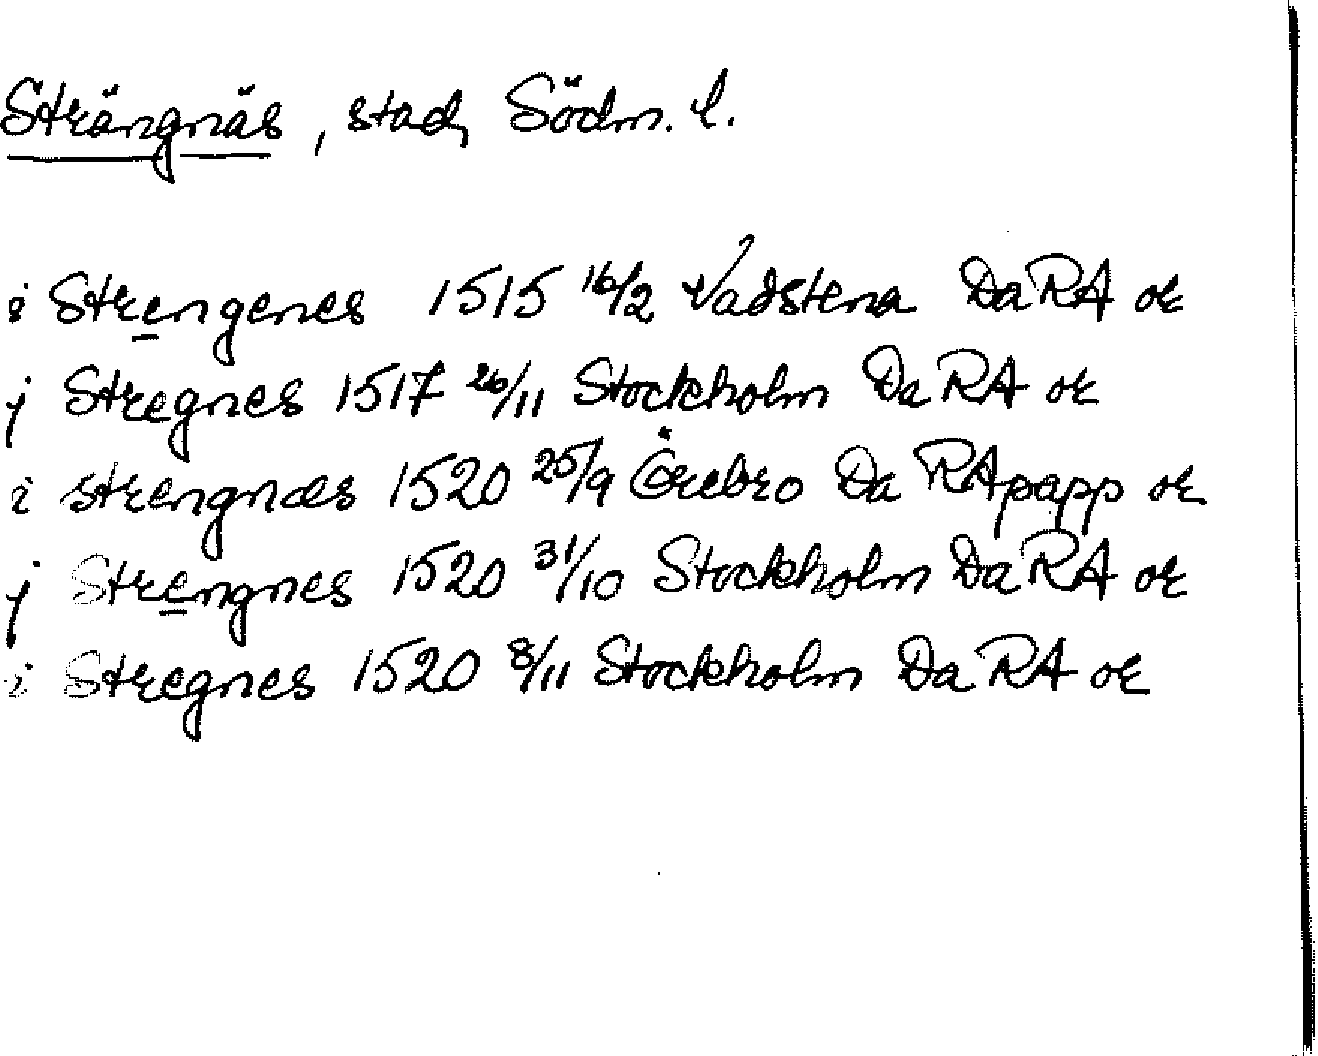 Strängnäs, stad, Södm. l.
i Strengenes 1515 16/2 Vadstena DaRA or
j Stregnes 1517 26/11 Stockholm DaRA or
i strengnæs 1520 25/9 Örebro Da RApapp or
j Strengnes 1520 31/10 Stockholm DaRA or
i Stregnes 1520 8/11 Stockholm DaRA or